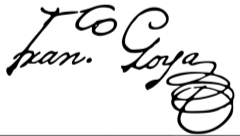 Fran.co Goya